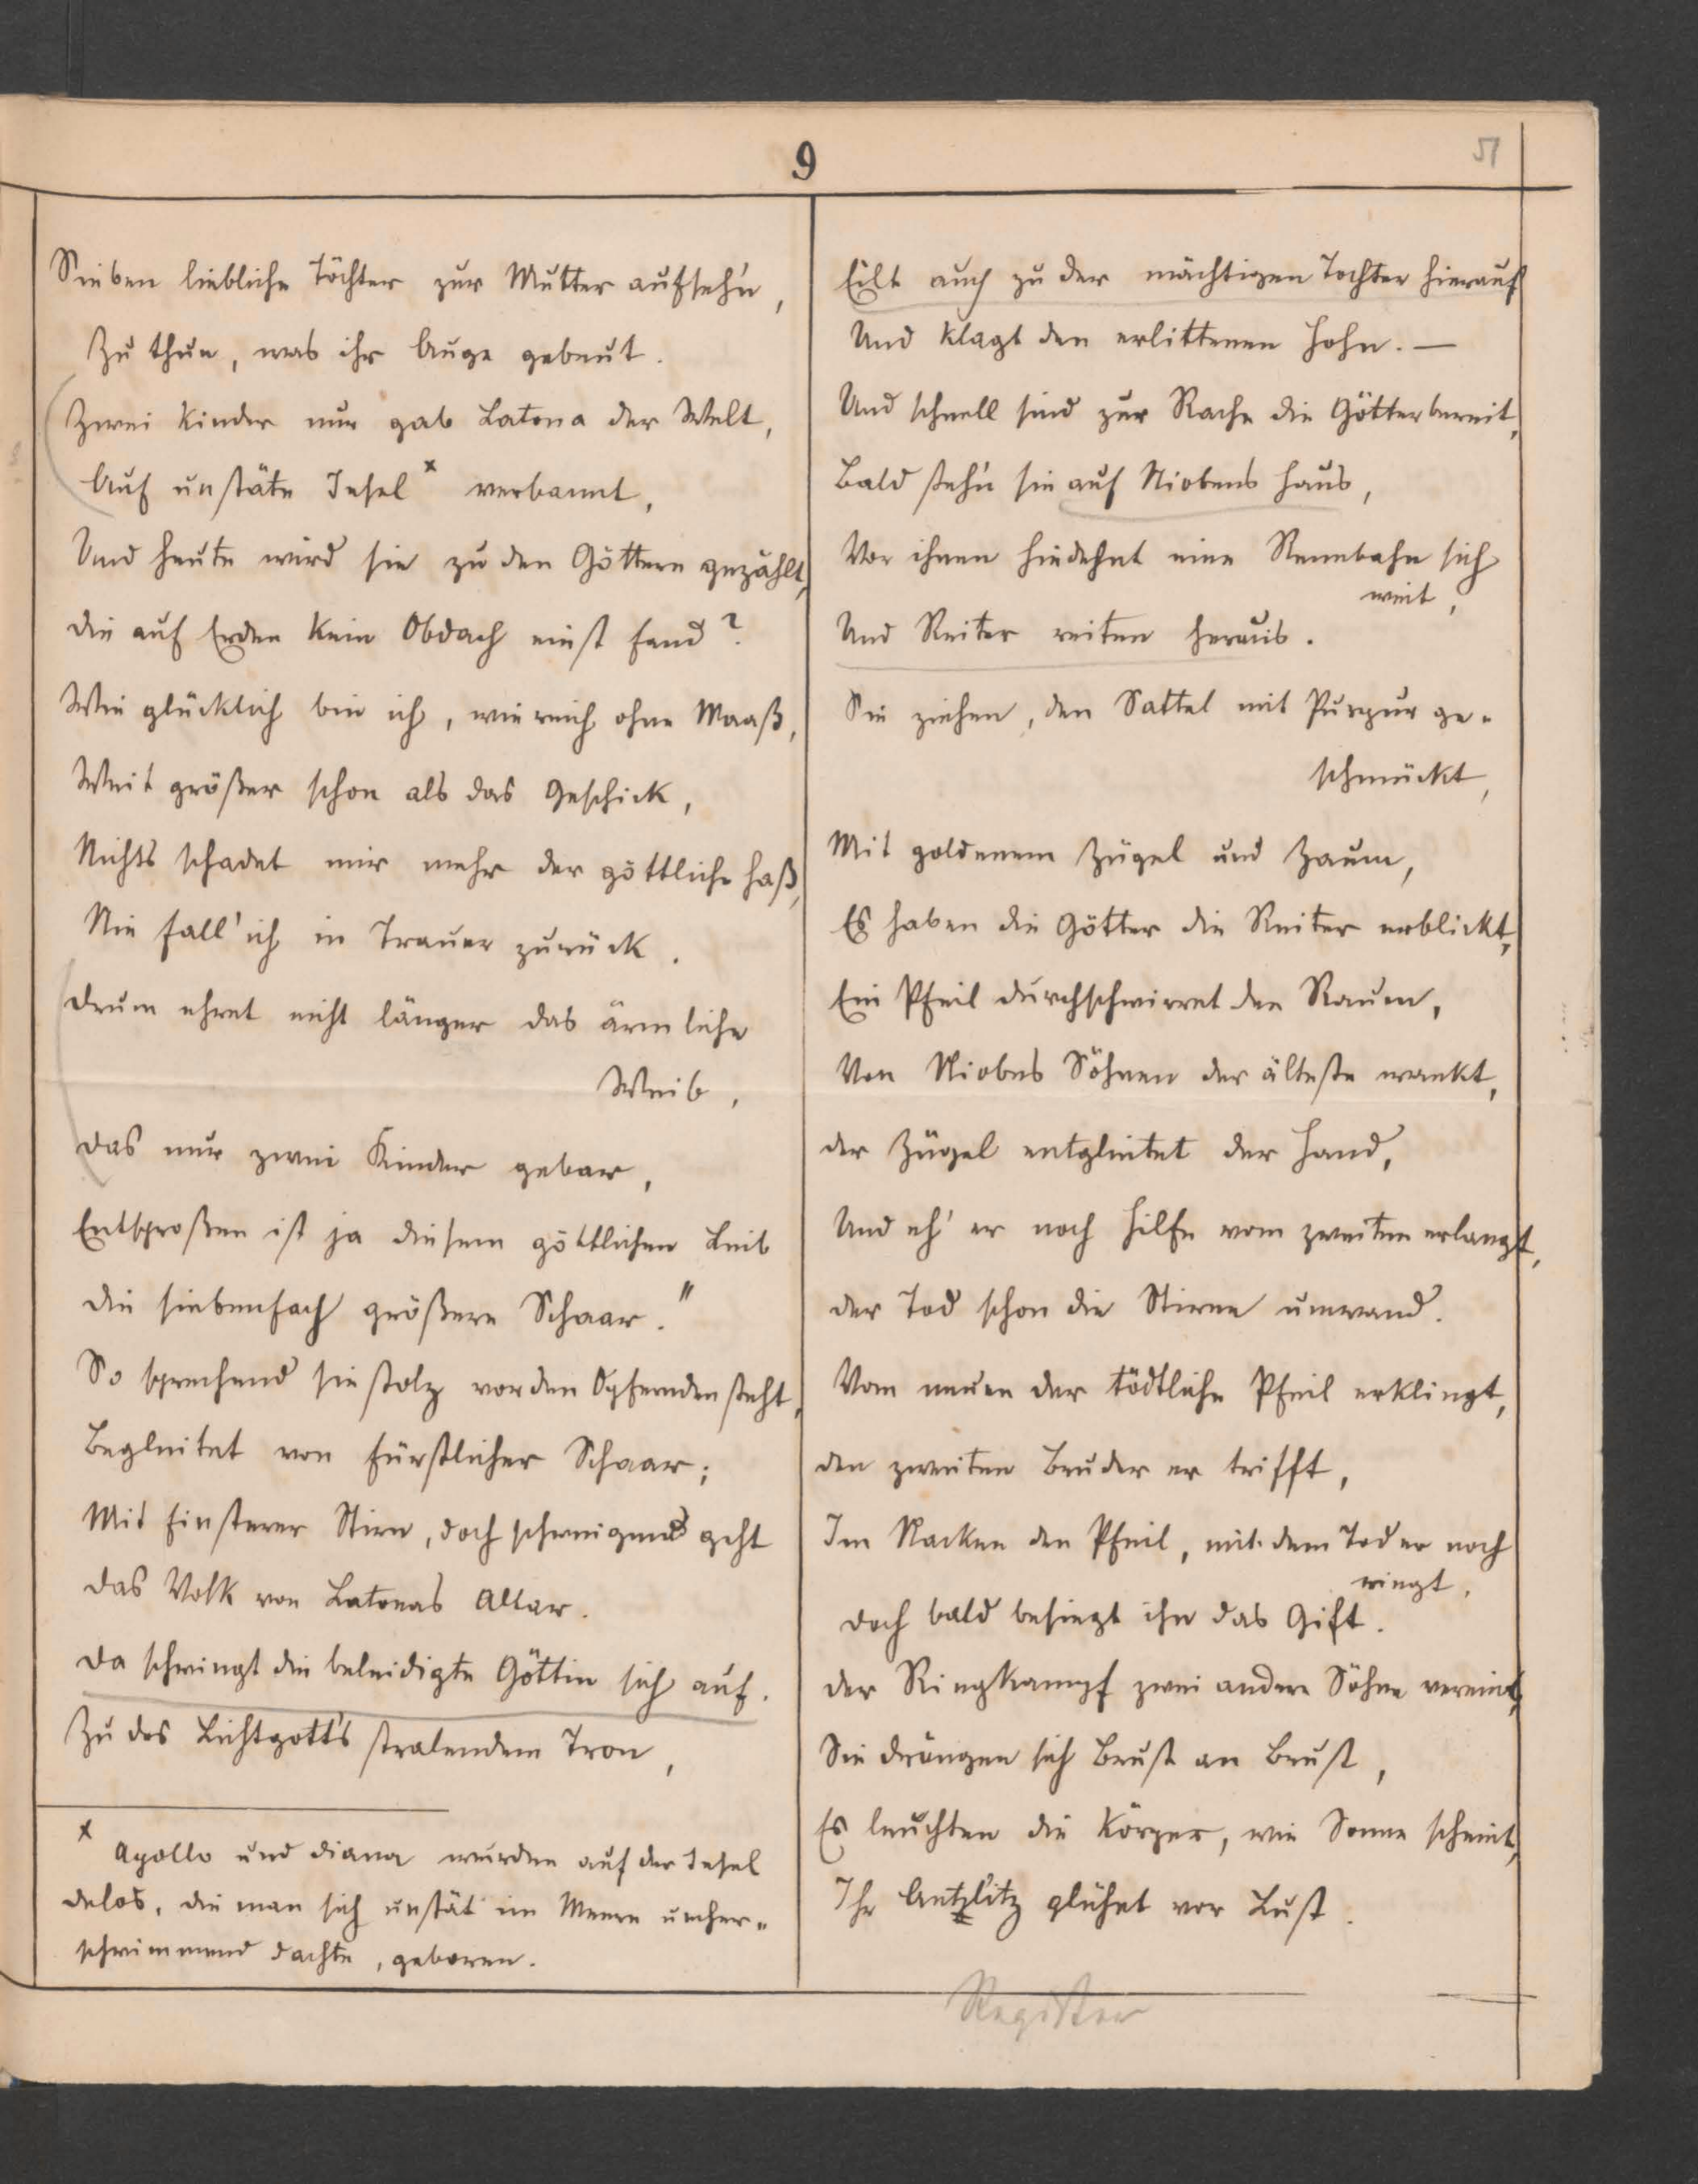 9
51
Sieben liebliche Töchter zur Mutter aufseh'n,
Zu thun, was ihr Auge gebeut.
Zwei Kinder nur gab Latona der Welt,
Auf unstäte Insel x verbannt,
Und heute wird sie zu den Göttern gezählt,
die auf Erden kein Obdach einst fand?
Wie glücklich bin ich, wie reich ohne Maaß,
Weit größer schon als das Geschick,
Nichts schadet mir mehr der göttliche Haß,
Nie fall' ich in Trauer zurück.
drum ehret nicht länger das ärmliche
Weib,
das nur zwei Kinder gebar,
Entsproßen ist ja diesem göttlichen Leib
die siebenfach größere Schaar."
So sprechend sie stolz vor den Opfernden steht,
Begleitet von fürstlicher Schaar;
Mit finsterer Stirn, doch schweigend geht
das Volk von Latonas Altar.
da schwingt die beleidigte Göttin sich auf.
Zu des Lichtgott's stralendem Tron,
x Apollo und diana wurden auf der Insel
delos, die man sich unstät im Meere umher-
schwimmend dachte, geboren.
Eilt auch zu der mächtigen Tochter hierauf
Und klagt den erlittenen Hohn. —
Und schnell sind zur Rache die Götter bereit,
Bald steh'n sie auf Niobens Haus,
Vor ihnen hindehnt eine Rennbahn sich
weit,
Und Reiter reiten heraus.
Sie ziehen, den Sattel mit Purpur ge-
schmückt,
Mit goldenem Zügel und Zaum,
Es haben die Götter die Reiter erblickt,
Ein Pfeil durchschwirret den Raum,
Von Niobes Söhnen der älteste wankt,
der Zügel entgleitet der Hand,
Und eh' er noch Hilfe vom zweiten erlangt,
der Tod schon die Stirne umwand.
Vom neuen der tödtliche Pfeil erklingt,
den zweiten Bruder er trifft,
Im Nacken den Pfeil, mit dem Tod er noch
ringt,
doch bald besiegt ihn das Gift.
der Ringkampf zwei andere Söhne vereint,
Sie drängen sich Brust an Brust,
Es leuchten die Körper, wie Sonne scheint,
Ihr Antzlitz glühet vor Lust.
Register